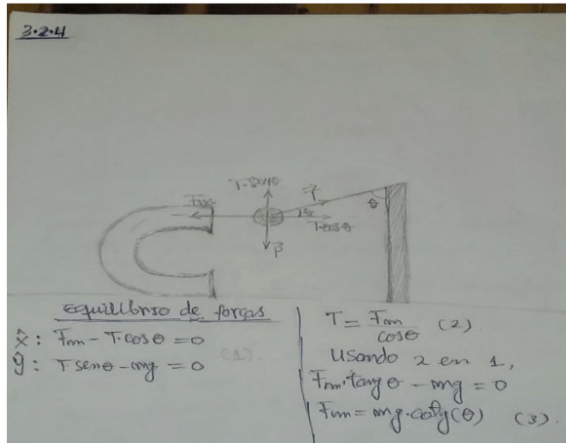 3.2.4
T·senθ
Fm
T
θ
T·cosθ
P
Equilibrio de forças
x̂: Fm - T·cosθ = 0
ŷ: T senθ - mg = 0 (1).
T = Fm/cosθ (2)
Usando 2 en 1,
Fm·tangθ - mg = 0
Fm = mg·cotg(θ) (3).